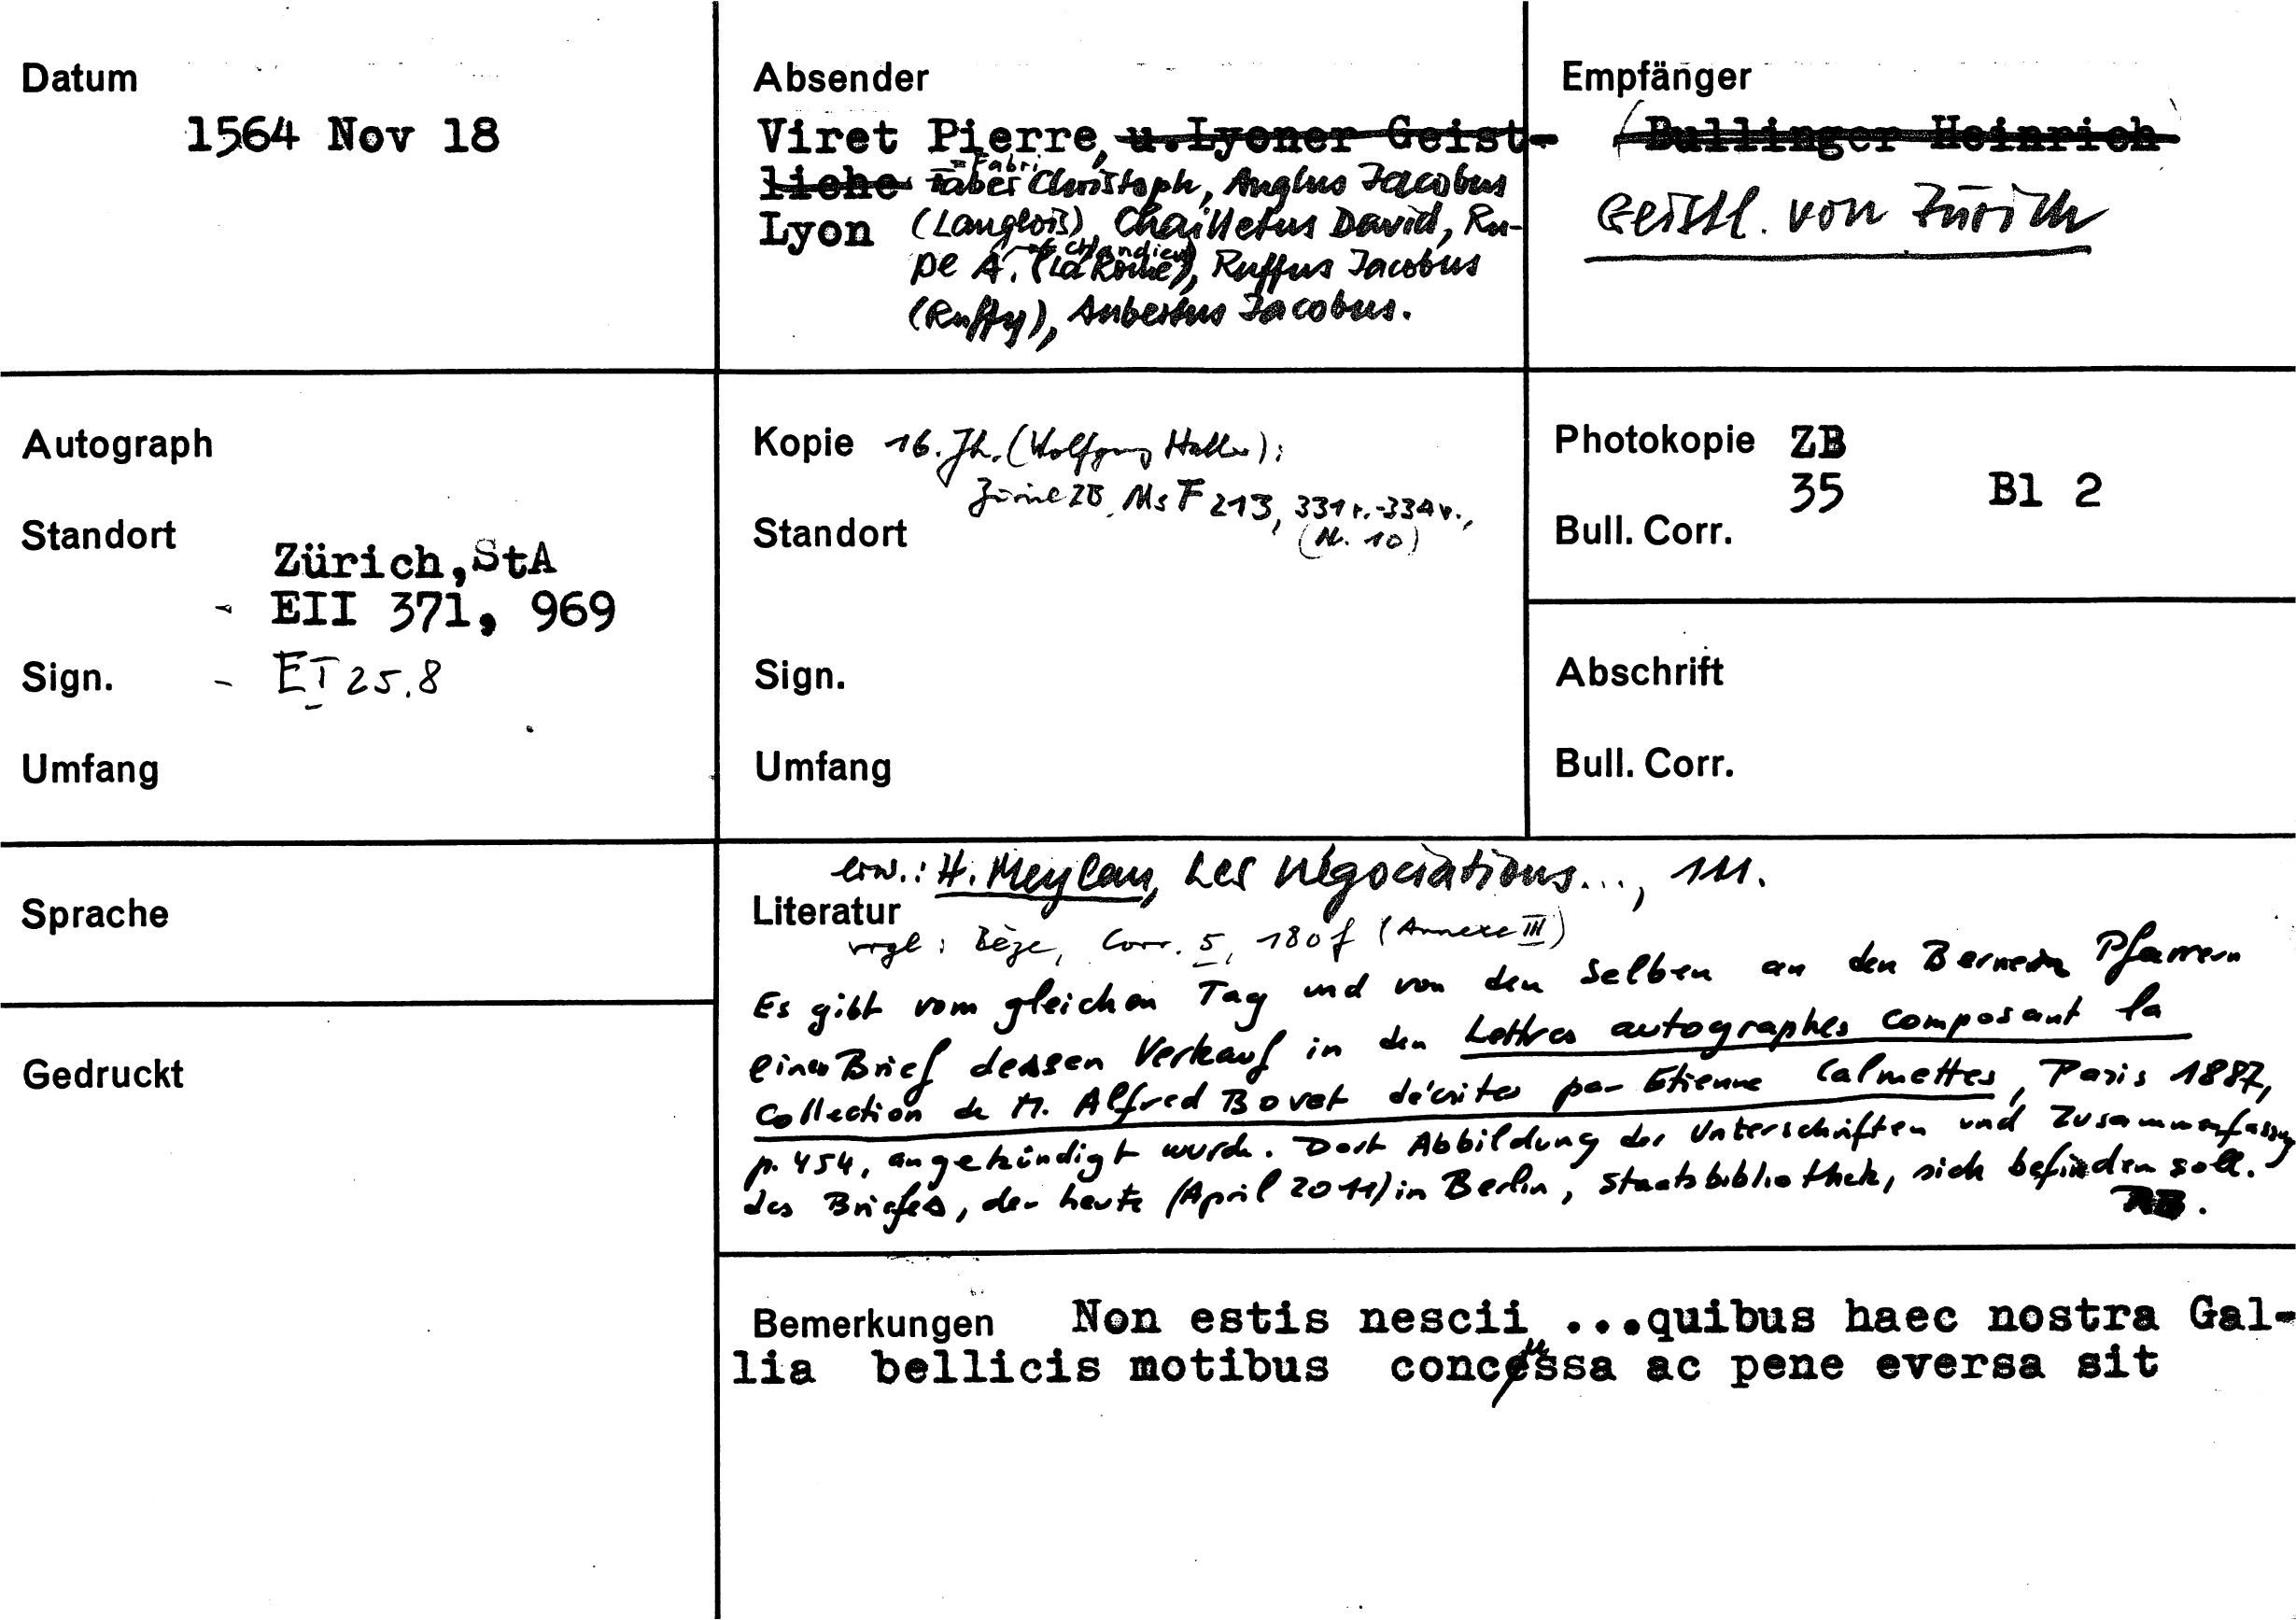 Datum
1564 Nov 18
Absender
Viret Pierre, u. Lyoner Geist-
liche Faber = Fabri Christoph, Anglus Jacobus
Lyon (Langlois), Chailletus David, Ru-
pe A. (La Roche), Ruffus Jacobus
(Ruffy), Aubertus Jacobus.
Empfänger
(Bullinger Heinrich)
Geistl. von Zürich
Autograph
Standort
Zürich, StA
- EII 371, 969
Sign. - EI 25.8
Umfang
Kopie 16. Jh. (Wolfgang Haller):
Zürich ZB, Ms F 213, 331r.-334v.,
(Nr. 10)
Standort
Sign.
Umfang
Photokopie ZB
35 Bl 2
Bull. Corr.
Abschrift
Bull. Corr.
Sprache
Gedruckt
erw.: H. Meylan, Les négociations..., 111.
Literatur
vrgl: Bèze, Corr. 5, 180f (Annexe III)
Es gibt vom gleichen Tag und von den selben an den Bernern Pfarrern
einen Brief dessen Verkauf in den Lettres autographes composant la
Collection de M. Alfred Bovet décrites par Etienne Calmettes, Paris 1887,
p. 454, angekündigt wurde. Dort Abbildung der Unterschriften und Zusammenfassung
des Briefes, der heute (April 2011) in Berlin, Staatsbibliothek, sich befinden soll.
Bemerkungen Non estis nescii ...quibus haec nostra Gal-
lia bellicis motibus concussa ac pene eversa sit